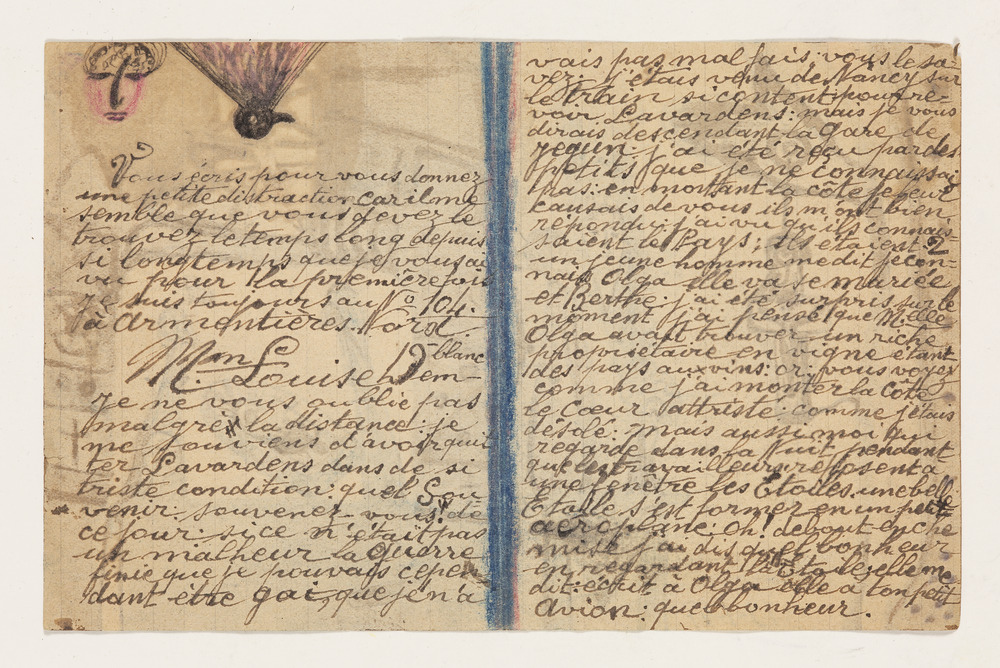 Vous écris pour vous donnez
une petite distraction car il me
semble que vous devez le
trouvez le temps long depuis
si longtemps que je vous ai
vu pour la premiere fois
je suis toujours au No 104.
à Armentières. Nord
blanc
Mm L D
M. Louise Dem-
je ne vous oublie pas
malgré la distance: je
me souviens d'avoir quit
ter Lavardens dans de si
triste condition: quel Sou
venir. souvenez-vous, de
ce jour si ce n'était pas
un malheur la Guerre
finie que je pouvais cepen
dant etre gai, que je n'a
vais pas mal fais vous le sa-
vez: j'étais venu de Nancy sur
le train si content pour re-
voir Lavardens: mais je vous
dirais descendant la gare de
jegun j'ai été reçu par des
petits que je ne connaissai
pas: en montant la côte je leur
causais de vous ils m'ont bien
répondu j'ai vu qu'ils connais-
saient le Pays; ils étaient 2
un jeune homme me dit je con-
nais Olga elle va se mariée
et Berthe: j'ai été surpris sur le
moment j'ai pensé que Melle
Olga avait trouver un riche
propriétaire en vigne étant
des pays aux vins: or, vous voyez
comme j'ai monter la Côte
le Cœur attristé: comme j'étais
désolé: mais aussi moi qui
regarde dans la Nuit pendant
que les travailleurs reposent a
une fenêtre les Etoiles. une belle
Etoile s'est former en un petit
aéroplane: oh! debout en che
mise j'ai dis quel bonheur
en regardant l'Etoile: elle me
dit: écrit à Olga elle a ton petit
Avion: quel bonheur.